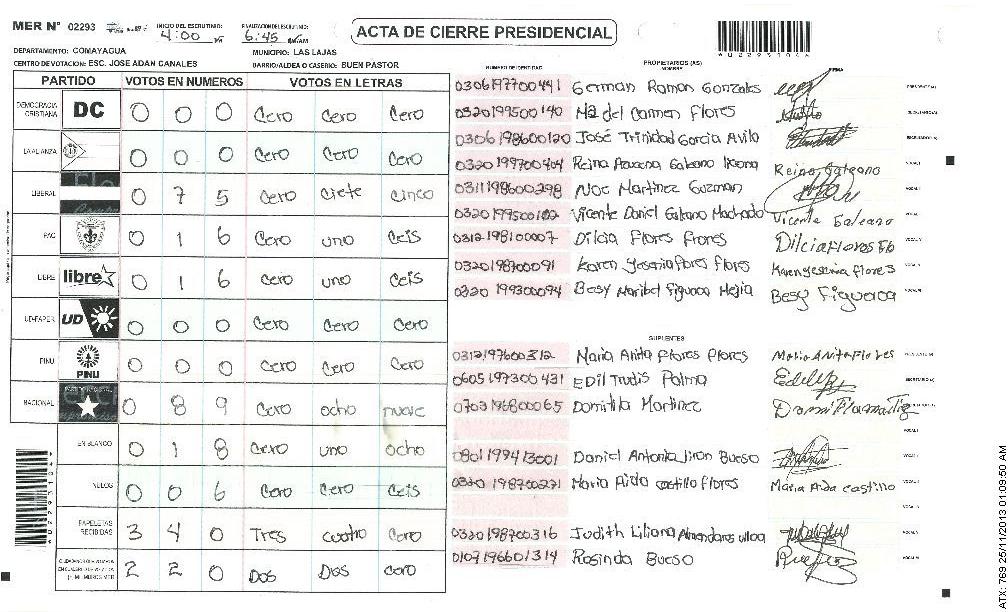 MER N° 02293 INICIO DEL ESCRUTINIO: 4:00 FINALIZACION ESCRUTINIO: 6:45
ACTA DE CIERRE PRESIDENCIAL
DEPARTAMENTO: COMAYAGUA MUNICIPIO: LAS LAJAS
CENTRO DE VOTACION: ESC. JOSE ADAN CANALES BARRIO/ALDEA O CASERIO: BUEN PASTOR
PARTIDO VOTOS EN NUMEROS VOTOS EN LETRAS
DEMOCRACIA CRISTIANA DC 0 0 0 Cero Cero Cero
LA ALIANZA 0 0 0 Cero Cero Cero
LIBERAL 0 7 5 Cero Ciete Cinco
PAC 0 1 6 Cero uno Ceis
LIBRE libre 0 1 6 Cero uno Ceis
UD-FAPER UD 0 0 0 Cero Cero Cero
PINU PINU 0 0 0 Cero Cero Cero
NACIONAL 0 8 9 Cero ocho nueve
EN BLANCO 0 1 8 Cero uno ocho
NULOS 0 0 6 Cero Cero Ceis
PAPELETAS RECIBIDAS 3 4 0 Tres cuatro Cero
2 2 0 Dos Dos cero
NUMERO DE IDENTIDAD PROPIETARIOS (AS) NOMBRE FIRMA
0306197700441 German Ramon Gonzales
0320199500140 Ma del Carmen Flores
0306198600120 José Trinidad Garcia Avila
0320199700404 Reina Azucena Galeano Reina Galeano
0311198600298 Noe Martinez Guzman
0320199500102 Vicente Daniel Galeano Machado Vicente Galeano
0312198100007 Dilcia Flores Flores Dilcia Flores
0320198700091 Karen Yesenia flores Flores Karen yesenia flores
0320199300094 Besy Maribel Figueroa Mejia Besy Figueroa
SUPLENTES
0312197600312 Maria Anita Flores Flores Maria Anita Flores
0605197300431 Edil Trudis Palma
0703196800065 Domitila Martinez
0801199413001 Daniel Antonio Jiron Bueso
0320198700271 Maria Aida castillo flores Maria Aida castillo
0320198700316 Judith Liliana Almendares ulloa
0107196601314 Rosinda Bueso
ATX: 769 25/11/2013 01:09:50 AM